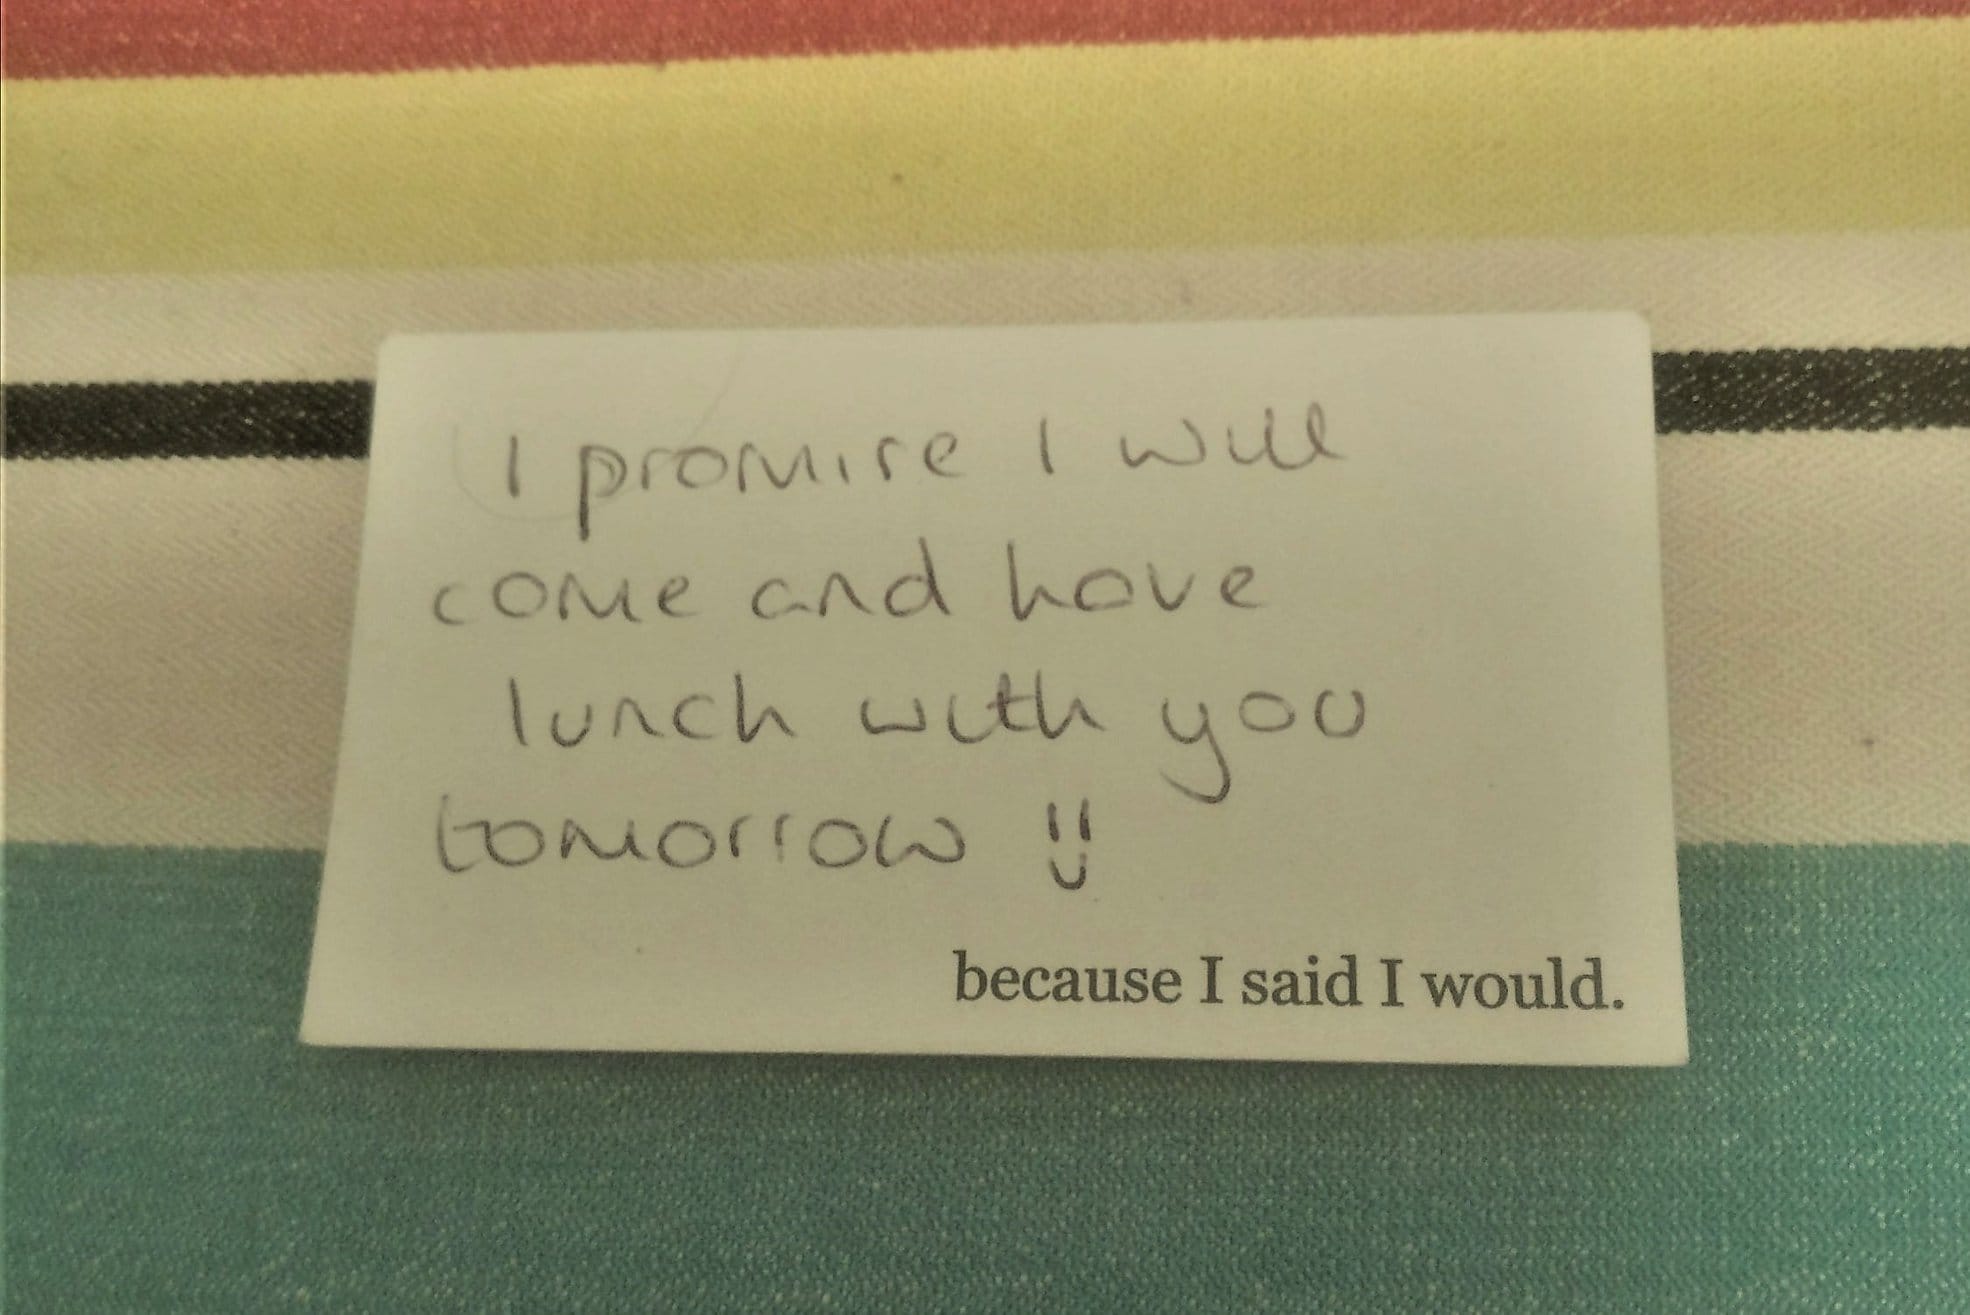 I promise I will
come and have
lunch with you
tomorrow !!
because I said I would.